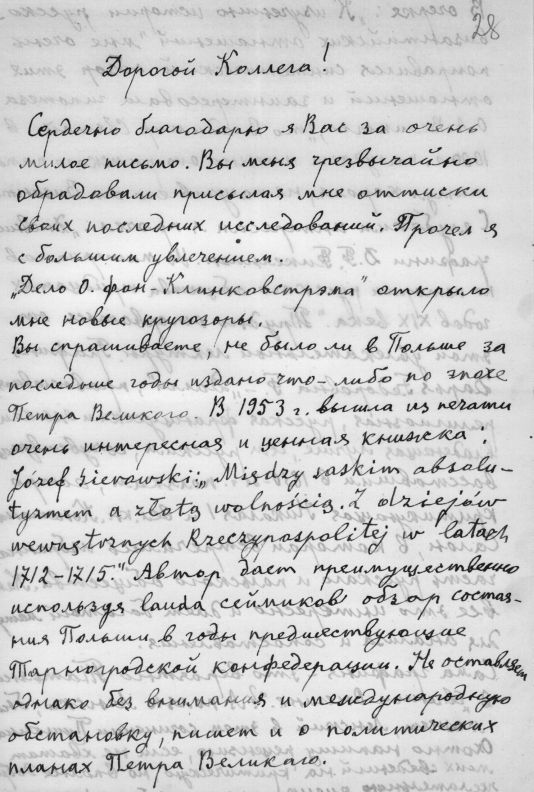 28
Дорогой Коллега!
Сердечно благодарю я Вас за очень
милое письмо. Вы меня чрезвычайно
обрадовали присылая мне оттиски
своих последних исследований. Прочел я
с большим увлечением.
„Дело О. фон-Клинковстрэма" открыло
мне новые кругозоры.
Вы спрашиваете, не было ли в Польше за
последние годы издано что-либо по эпохе
Петра Великого. В 1953 г. вышла из печати
очень интересная и ценная книжка:
Józef Gierowski: „Między saskim absolu-
tyzmem a złotą wolnością. Z dziejów
wewnętrznych Rzeczypospolitej w latach
1712-1715." Автор дает преимущественно
используя lauda сеймиков обзор состоя-
ния Польши в годы предшествующие
Тарногродской конфедерации. Не оставляет
однако без внимания и международную
обстановку, пишет и о политических
планах Петра Великаго.